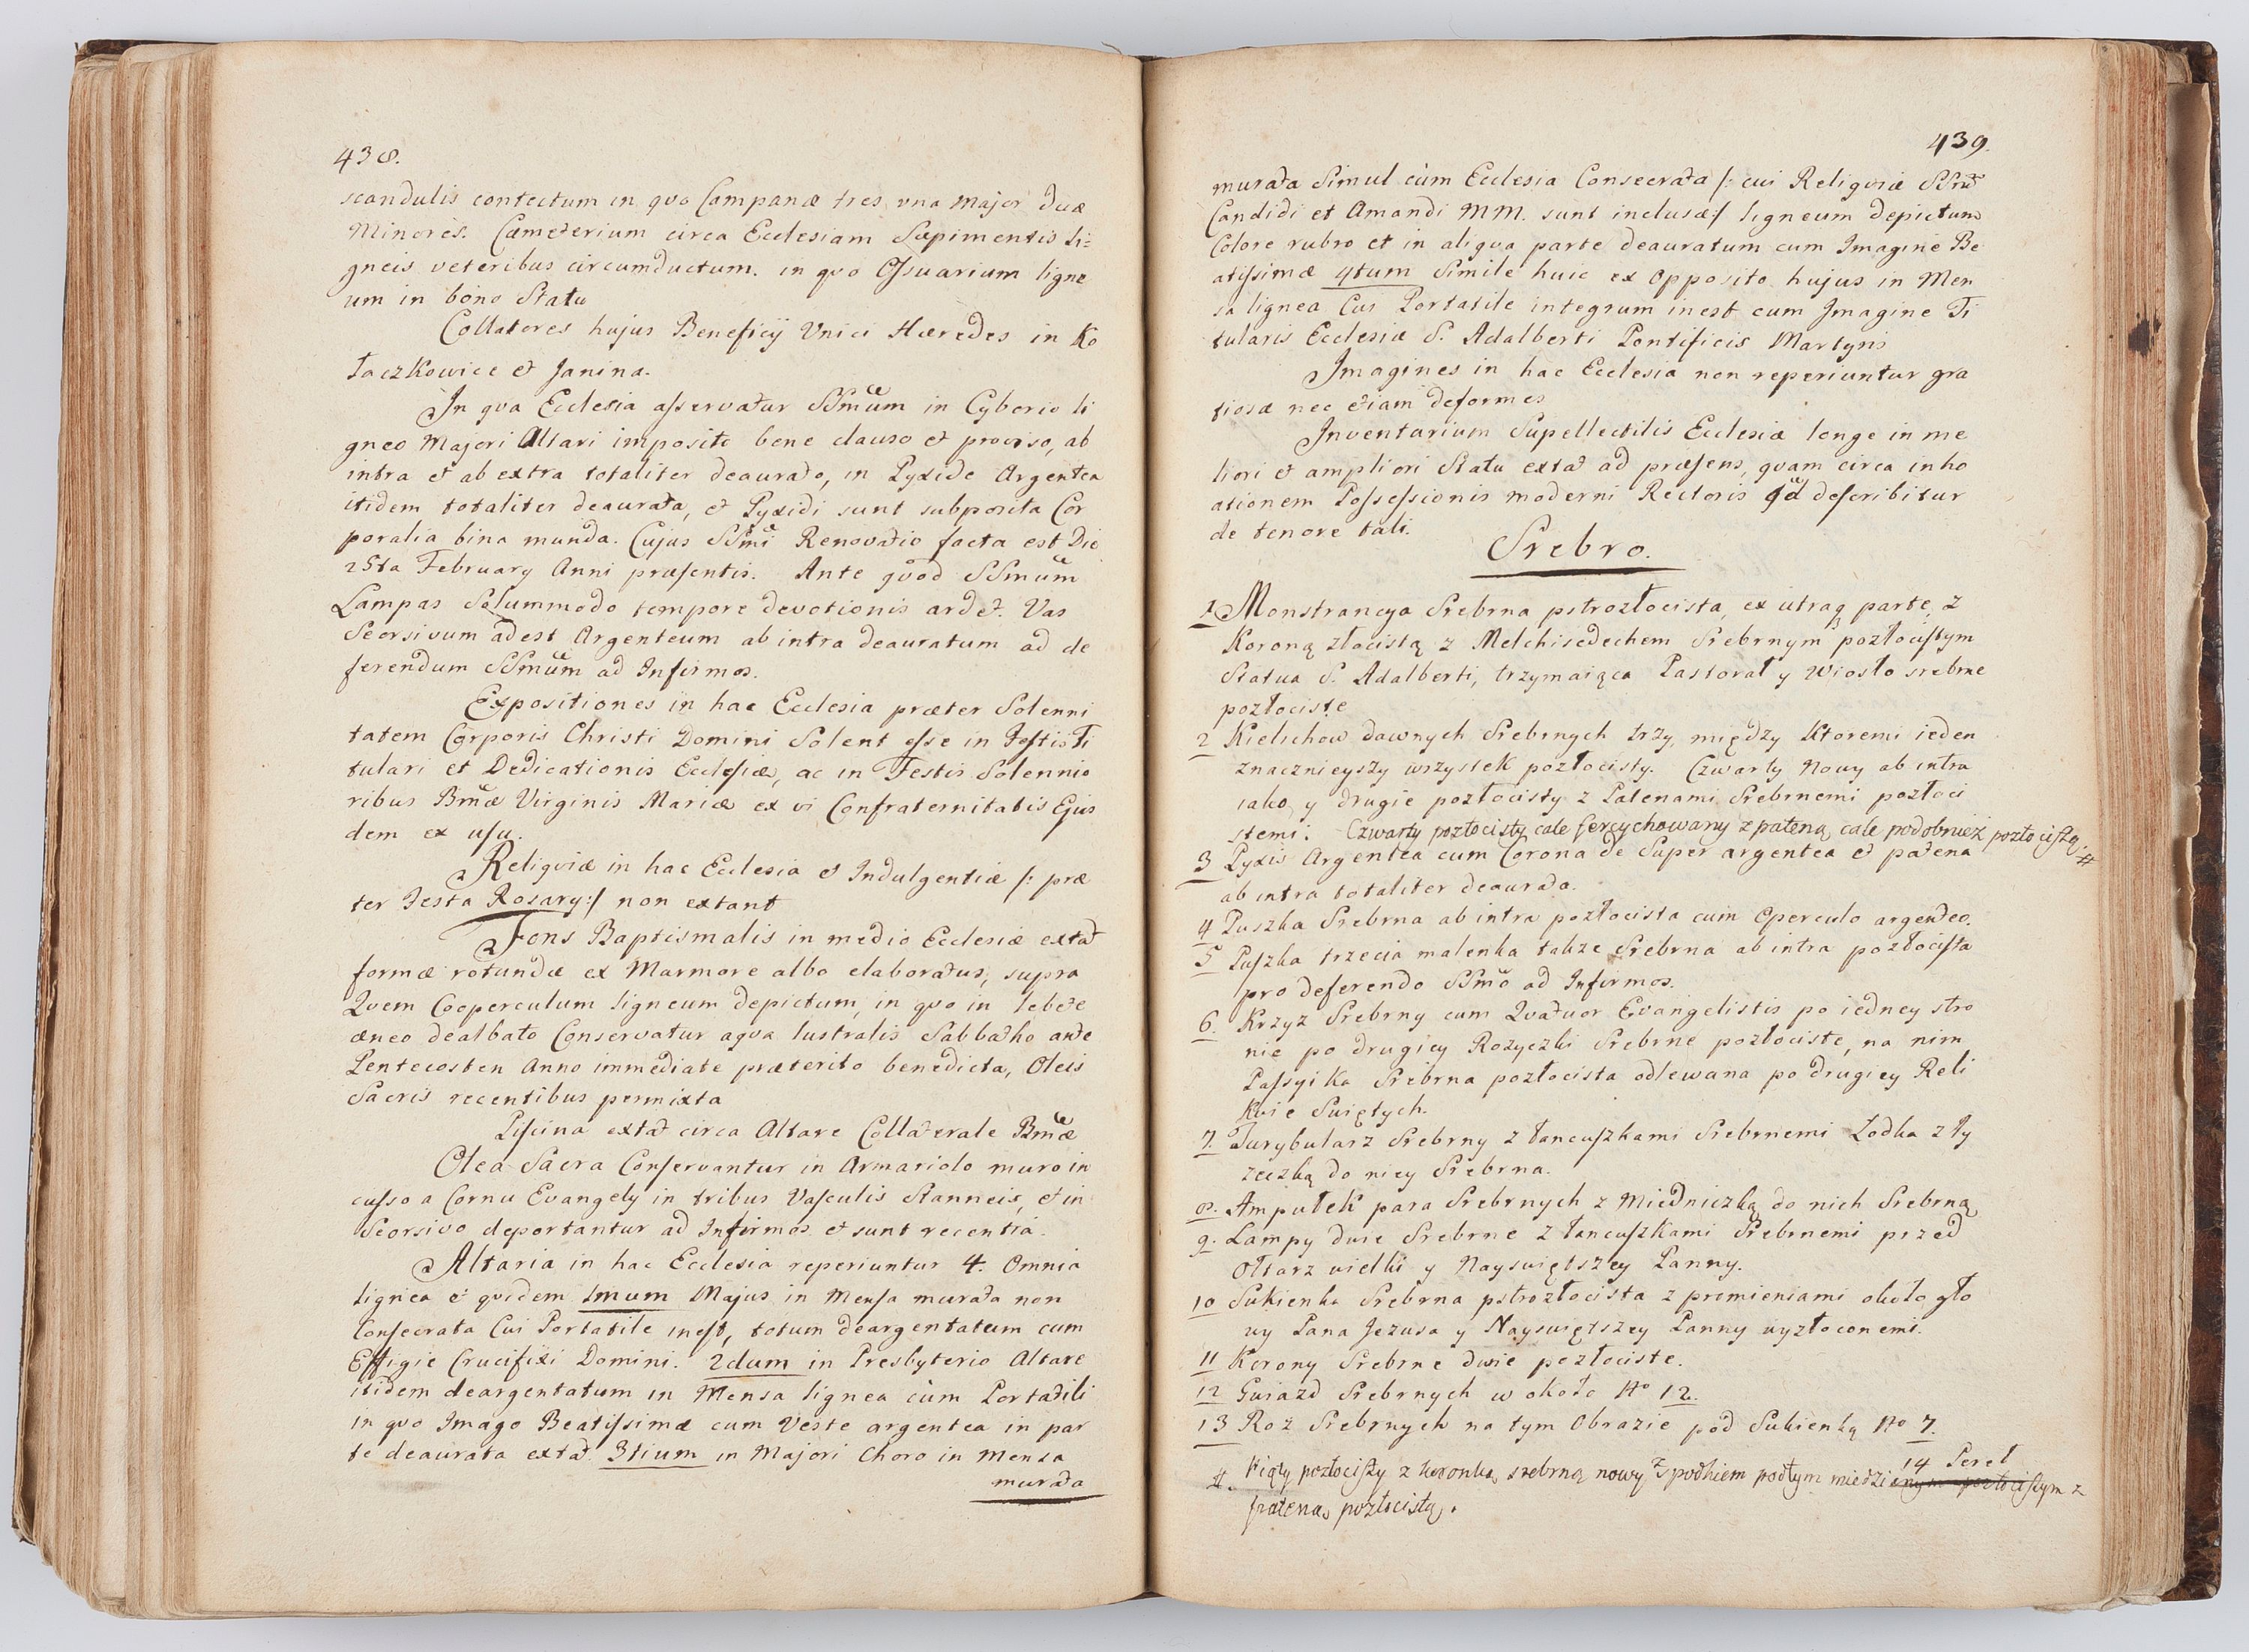 438.
scandulis contectum in quo Campanæ tres una major duæ
Minores. Cæmeterium circa Ecclesiam Sæpimentis li=
gneis veteribus circumductum. in quo Ossuarium ligne
um in bono Statu
Collatores hujus Beneficij Unici Hæredes in Ko
łaczkowice et Janina.
In qua Ecclesia asservatur SSmum in Cyborio li
gneo Majori Altari imposito bene clauso et proviso, ab
intra et ab extra totaliter deaurato, in Pyxide Argentea
itidem totaliter deaurata, et Pyxidi sunt subposita Cor
poralia bina munda. Cujus SSmi Renovatio facta est Die
25ta February Anni præsentis. Ante quod SSmum
Lampas Solummodo tempore devotionis ardet. Vas
Seorsivum adest Argenteum ab intra deauratum ad de
ferendum SSmum ad Infirmos.
Expositiones in hac Ecclesia præter Solenni
tatem Corporis Christi Domini Solent esse in Festis Ti
tulari et Dedicationis Ecclesiæ, ac in Festis Solennio
ribus Bmæ Virginis Mariæ ex vi Confraternitatis Ejus
dem ex usu.
Reliquiæ in hac Ecclesia et Indulgentiæ /: præ
ter Festa Rosary :/ non extant
Fons Baptismalis in medio Ecclesiæ extat
formæ rotundæ ex Marmore albo elaboratus, supra
Quem Cooperculum ligneum depictum, in quo in lebete
æneo dealbato Conservatur aqua lustralis Sabbatho ante
Pentecosten Anno immediate præterito benedicta, Oleis
Sacris recentibus permixta
Piscina extat circa Altare Collaterale Bmæ
Olea Sacra Conservantur in Armariolo muro in
cusso a Cornu Evangely in tribus Vasculis Stanneis, et in
Seorsivo deportantur ad Infirmos et sunt recentia.
Altaria in hac Ecclesia reperiuntur 4. Omnia
lignea et quidem 1mum Majus in Mensa murata non
Consecrata Cui Portatile inest, totum deargentatum cum
Effigie Crucifixi Domini. 2dum in Presbyterio Altare
itidem deargentatum in Mensa lignea cùm Portatili
in quo Imago Beatissimæ cum Veste argentea in par
te deaurata extat. 3tium in Majori Choro in Mensa
murata
439.
murata Simul cùm Ecclesia Consecrata /: cui Reliquiæ SSrũ
Candidi et Amandi MM. sunt inclusæ :/ ligneum depictum
Colore rubro et in aliqua parte deauratum cum Imagine Be
atissimæ 4tum Simile huic ex opposito hujus in Men
sa lignea Cui Portatile integrum inest cum Imagine Ti
tularis Ecclesiæ S. Adalberti Pontificis Martyris
Imagines in hac Ecclesia non reperiuntur gra
tiosæ nec etiam deformes
Inventarium Supellectilis Ecclesiæ longe in me
liori et ampliori Statu extat ad præsens, quam circa inho
ationem Possessionis moderni Rectoris qd describitur
de tenore tali.
Srebro.
1 Monstrancya Srebrna pstrozłocista, ex utraq parte, z
Koroną złocistą z Melchisedechem Srebrnym pozłocistym
Statua S. Adalberti, trzymaiąca Pastorał y Wiosło srebrne
pozłociste
2 Kielichow dawnych Srebrnych trzy, między Ktoremi ieden
znacznieyszy wszystek pozłocisty. Czwarty Nowy ab intra
iako y drugie pozłocisty z Patenami Srebrnemi pozłoci
stemi. Czwarty pozłocisty cale sercychowany z pateną cale podobnież pozłocistą. #
3 Pyxis Argentea cum Corona de Super argentea et patena
ab intra totaliter deaurata.
4 Puszka Srebrna ab intra pozłocista cum Operculo argenteo.
5 Puszka trzecia malenka takze Srebrna ab intra pozłocista
pro deferendo SSmo ad Infirmos.
6. Krzyz Srebrny cum Quatuor Evangelistis po iedney stro
nie po drugiey Rozyczki Srebrne pozłociste, na nim
Passyika Srebrna pozłocista odlewana po drugiey Reli
kwie Swiętych.
7. Turybularz Srebrny z łancuszkami Srebrnemi Łodka z ły
zeczką do niey Srebrna.
8. Ampułek para Srebrnych z Miedniczką do nich Srebrną
9. Lampy dwie Srebrne z łancuszkami Srebrnemi przed
Ołtarz wielki y Nayswiętszey Panny.
10 Sukienka Srebrna pstrozłocista z promieniami około gło
wy Pana Jezusa y Nayswiętszey Panny wyzłoconemi.
11 Korony Srebrne dwie pozłociste.
12 Gwiazd Srebrnych w około No 12.
13 Roz Srebrnych na tym Obrazie pod Sukienką No 7.
14 Pereł
#. Piąty pozłocisty z koronką srebrną nowy z spodkiem podłym miedzienym pozłocistym z
pateną pozłocistą.